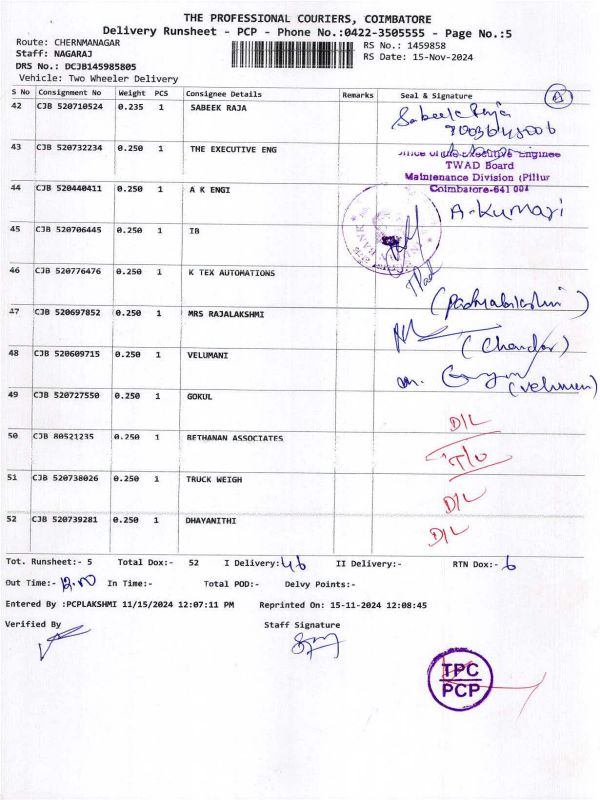 THE PROFESSIONAL COURIERS, COIMBATORE
Delivery Runsheet - PCP - Phone No.:0422-3505555 - Page No.:5
Route: CHERNMANAGAR RS No.: 1459858
Staff: NAGARAJ RS Date: 15-Nov-2024
DRS No.: DCJB145985805
Vehicle: Two Wheeler Delivery
S No Consignment No Weight PCS Consignee Details Remarks Seal & Signature
42 CJB 520710524 0.235 1 SABEEK RAJA Sabeek Raja
43 CJB 520732234 0.250 1 THE EXECUTIVE ENG
Office of the Executive Engineer
TWAD Board
Maintenance Division (Pillur
Coimbatore-641 001
44 CJB 520440411 0.250 1 A K ENGI A-Kumari
45 CJB 520706445 0.250 1 IB
46 CJB 520776476 0.250 1 K TEX AUTOMATIONS
47 CJB 520697852 0.250 1 MRS RAJALAKSHMI
48 CJB 520609715 0.250 1 VELUMANI
(Chandar)
49 CJB 520727550 0.250 1 GOKUL D/L
50 CJB 80521235 0.250 1 BETHANAN ASSOCIATES
51 CJB 520738026 0.250 1 TRUCK WEIGH D/L
52 CJB 520739281 0.250 1 DHAYANITHI D/L
Tot. Runsheet:- 5 Total Dox:- 52 I Delivery:46 II Delivery:- RTN Dox:- 6
Out Time:- 12.00 In Time:- Total POD:- Delvy Points:-
Entered By :PCPLAKSHMI 11/15/2024 12:07:11 PM Reprinted On: 15-11-2024 12:08:45
Verified By Staff Signature
TPC
PCP